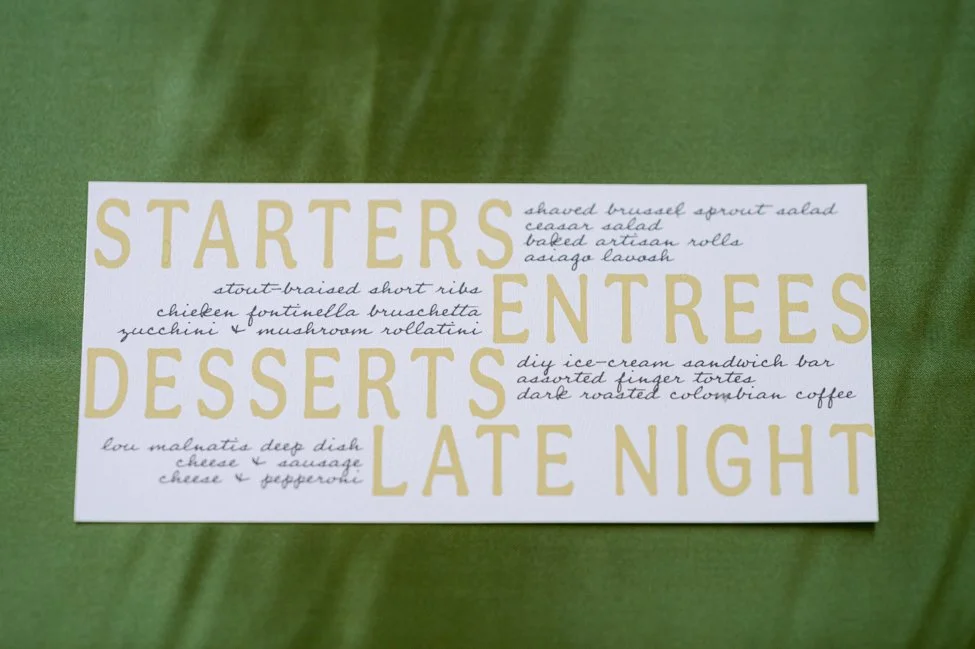 STARTERS
shaved brussel sprout salad
ceasar salad
baked artisan rolls
asiago lavosh
stout-braised short ribs
chicken fontinella bruschetta
zucchini & mushroom rollatini
ENTREES
DESSERTS
diy ice-cream sandwich bar
assorted finger tortes
dark roasted colombian coffee
lou malnatis deep dish
cheese & sausage
cheese & pepperoni
LATE NIGHT